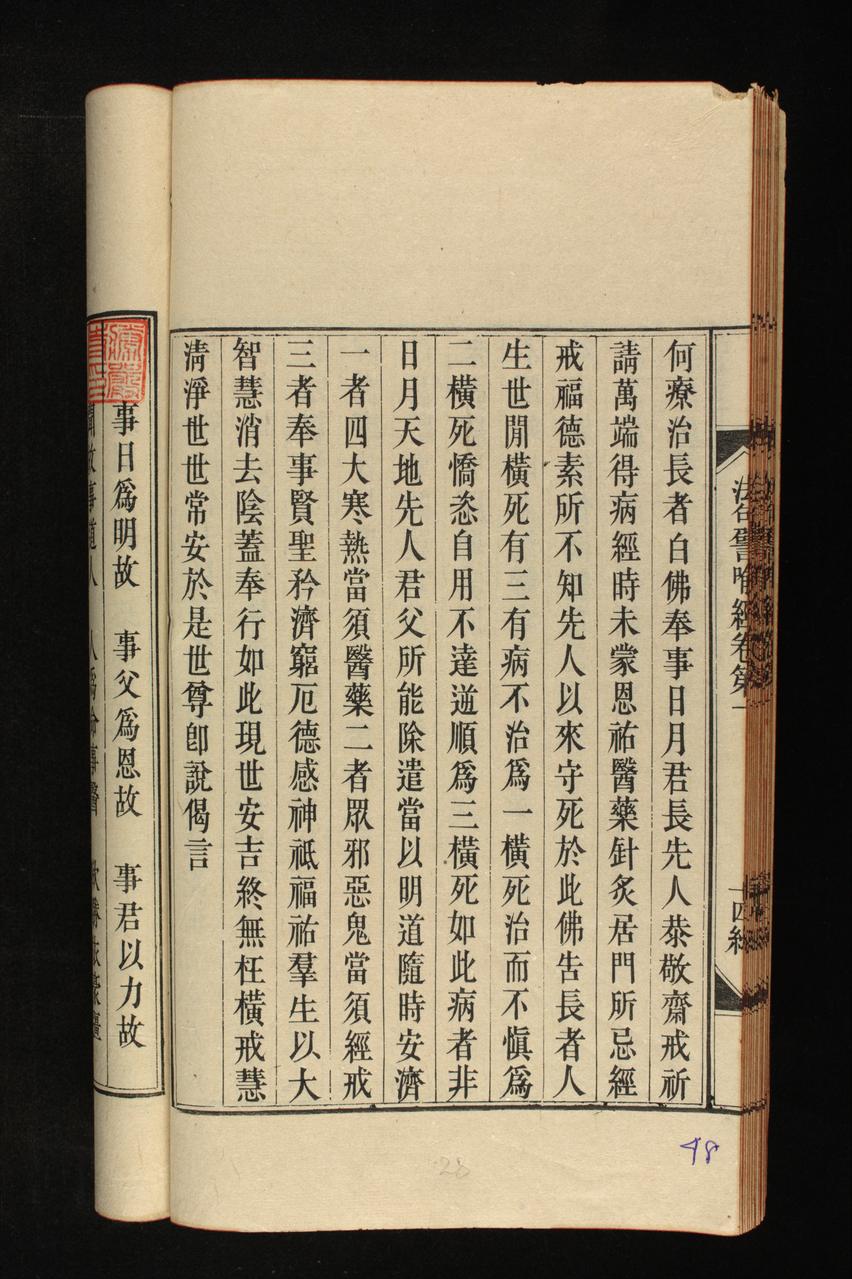 法句譬喻經卷第一
十四紙
何療治長者白佛奉事日月君長先人恭敬齋戒祈
請萬端得病經時未蒙恩祐醫藥針炙居門所忌經
戒福德素所不知先人以來守死於此佛吿長者人
生世閒橫死有三有病不治爲一橫死治而不愼爲
二橫死憍恣自用不達逆順爲三橫死如此病者非
日月天地先人君父所能除遣當以明道隨時安濟
一者四大寒熱當須醫藥二者眾邪惡鬼當須經戒
三者奉事賢聖矜濟窮厄德感神祗福祐羣生以大
智慧消去陰蓋奉行如此現世安吉終無枉橫戒慧
淸淨世世常安於是世尊卽說偈言
事日爲明故　事父爲恩故　事君以力故
聞故事道人　人爲命事醫
48
28